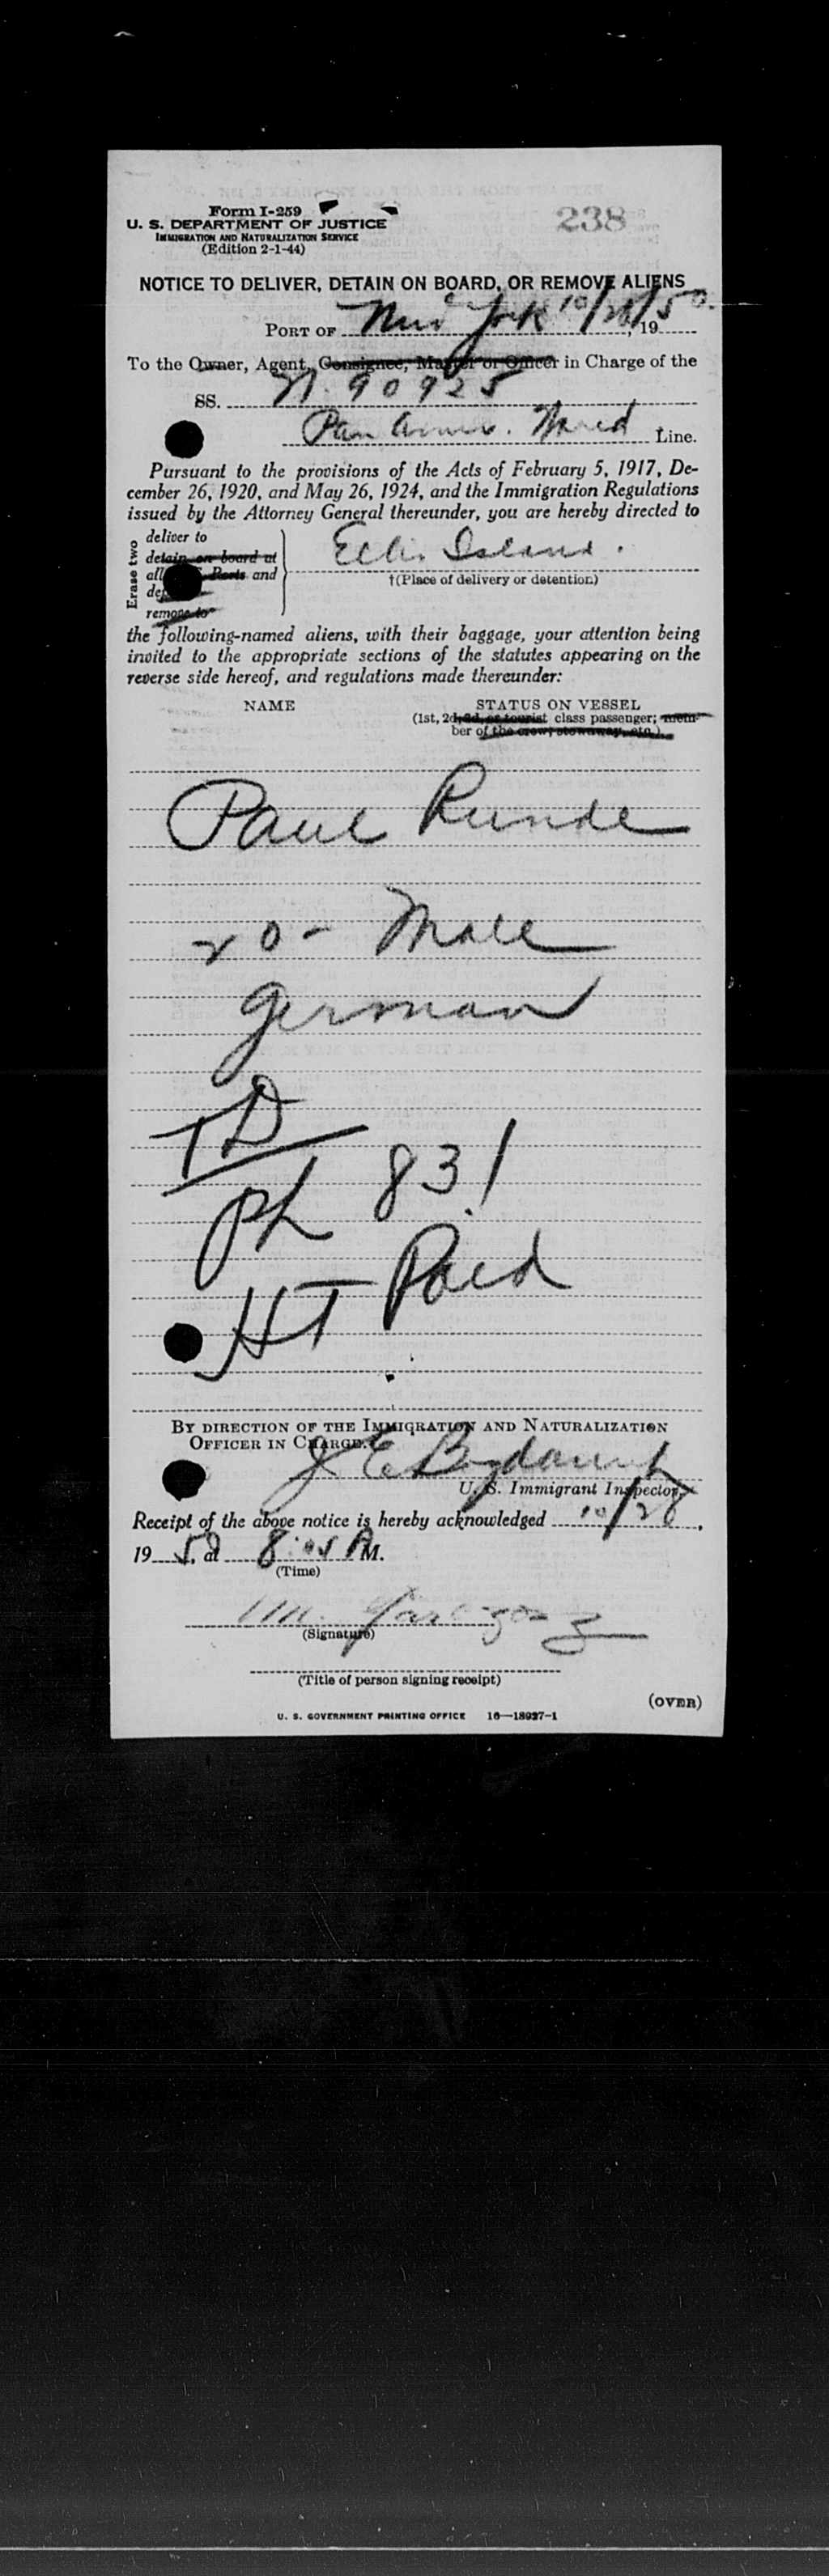 Form I-259
238
U. S. DEPARTMENT OF JUSTICE
IMMIGRATION AND NATURALIZATION SERVICE
(Edition 2-1-44)
NOTICE TO DELIVER, DETAIN ON BOARD, OR REMOVE ALIENS
PORT OF New York 10/28/50, 19
To the Owner, Agent, Consignee, Master or Officer in Charge of the
SS. N. 90925
Pan Amer. Line.
Pursuant to the provisions of the Acts of February 5, 1917, De-
cember 26, 1920, and May 26, 1924, and the Immigration Regulations
issued by the Attorney General thereunder, you are hereby directed to
Erase two
deliver to
detain on board at
all Ports and
remove to
Ellis Island.
†(Place of delivery or detention)
the following-named aliens, with their baggage, your attention being
invited to the appropriate sections of the statutes appearing on the
reverse side hereof, and regulations made thereunder:
NAME STATUS ON VESSEL
(1st, 2d, 3d, or tourist class passenger; mem-
ber of the crew, stowaway, etc.)
Paul Runde
20- Male
German
TD
Ph 831
HT Paid
BY DIRECTION OF THE IMMIGRATION AND NATURALIZATION
OFFICER IN CHARGE.
J E
U. S. Immigrant Inspector.
Receipt of the above notice is hereby acknowledged 10/28,
1950, at 8:05 PM.
(Time)
(Signature)
(Title of person signing receipt)
(OVER)
U. S. GOVERNMENT PRINTING OFFICE 16—18927-1